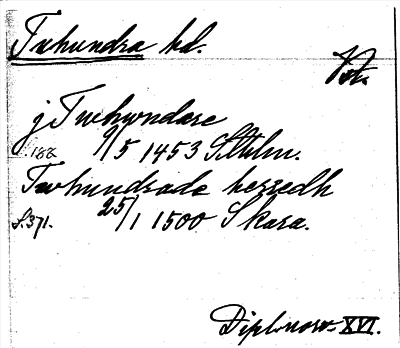 Tuhundra hd.
Vstm.
j Twhwndare
S. 188. 9/5 1453 Sthlm.
Twhundrade herredh
S. 371. 25/1 1500 Skara.
Diplomow. XVI.